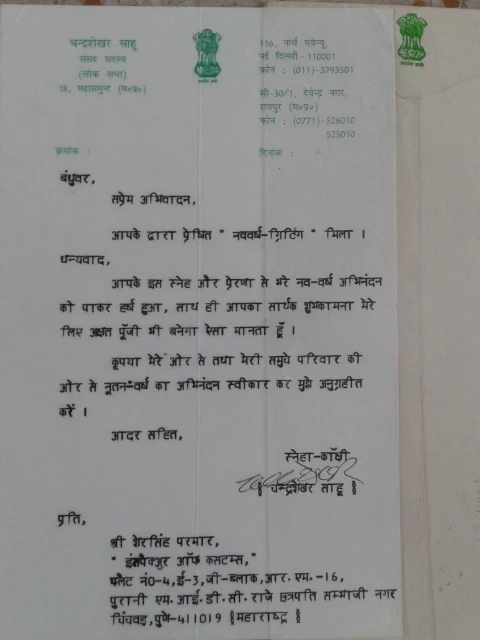 चन्द्रशेखर साहू
संसद सदस्य
(लोक सभा)
18, महासमुन्द (म०प्र०)
116, नार्थ एवेन्यू,
नई दिल्ली - 110001
फोन : (011)-3793501
सी-30/1, देवेन्द्र नगर,
रायपुर (म०प्र०)
फोन : (0771)-526010
525010
क्रमांक :
दिनांक :
बंधुवर,
सप्रेम अभिवादन,
आपके द्वारा प्रेषित " नववर्ष-ग्रिटिंग " मिला ।
धन्यवाद,
आपके इस स्नेह और प्रेरणा से भरे नव-वर्ष अभिनंदन
को पाकर हर्ष हुआ, साथ ही आपका सार्थक शुभकामना मेरे
लिए अक्षत पूँजी भी बनेगा ऐसा मानता हूँ ।
कृपया मेरे ओर से तथा मेरी समुचे परिवार की
ओर से नूतन-वर्ष का अभिनंदन स्वीकार कर मुझे अनुग्रहीत
करें ।
आदर सहित,
स्नेहा-काँक्षी
§ चन्द्रशेखर साहू §
प्रति,
श्री शेरसिंह परमार,
" इंसपैक्अर ऑफ कसटम्स,"
फ्लैट नं0-4, ई-3, जी-ब्लाक, आर. एम. -16,
पुरानी एम. आई. डी. सी. राजे छत्रपति सम्भाजी नगर
चिंचवड़, पुणे-411019 §महाराष्ट्र §